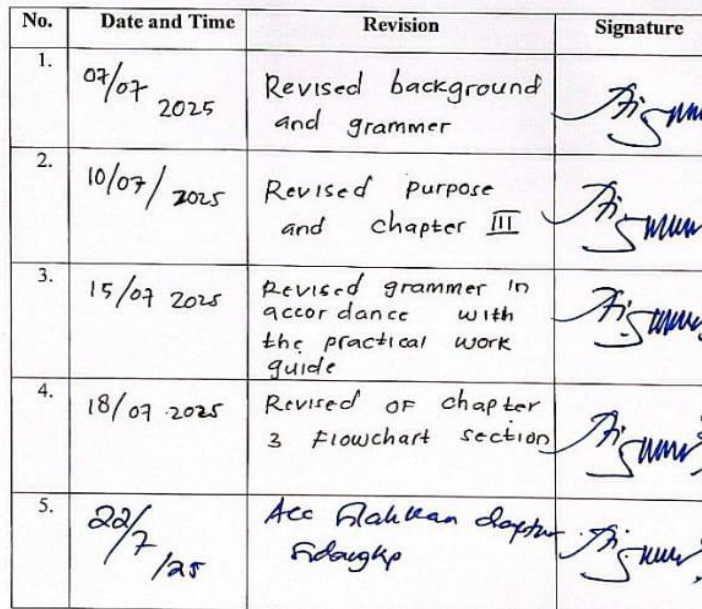 No. Date and Time Revision Signature
1. 07/07 2025 Revised background
and grammer
2. 10/07/2025 Revised purpose
and chapter III
3. 15/07 2025 Revised grammer in
accordance with
the practical work
guide
4. 18/07 2025 Revised of chapter
3 Flowchart section
5. 22/7/25 Acc